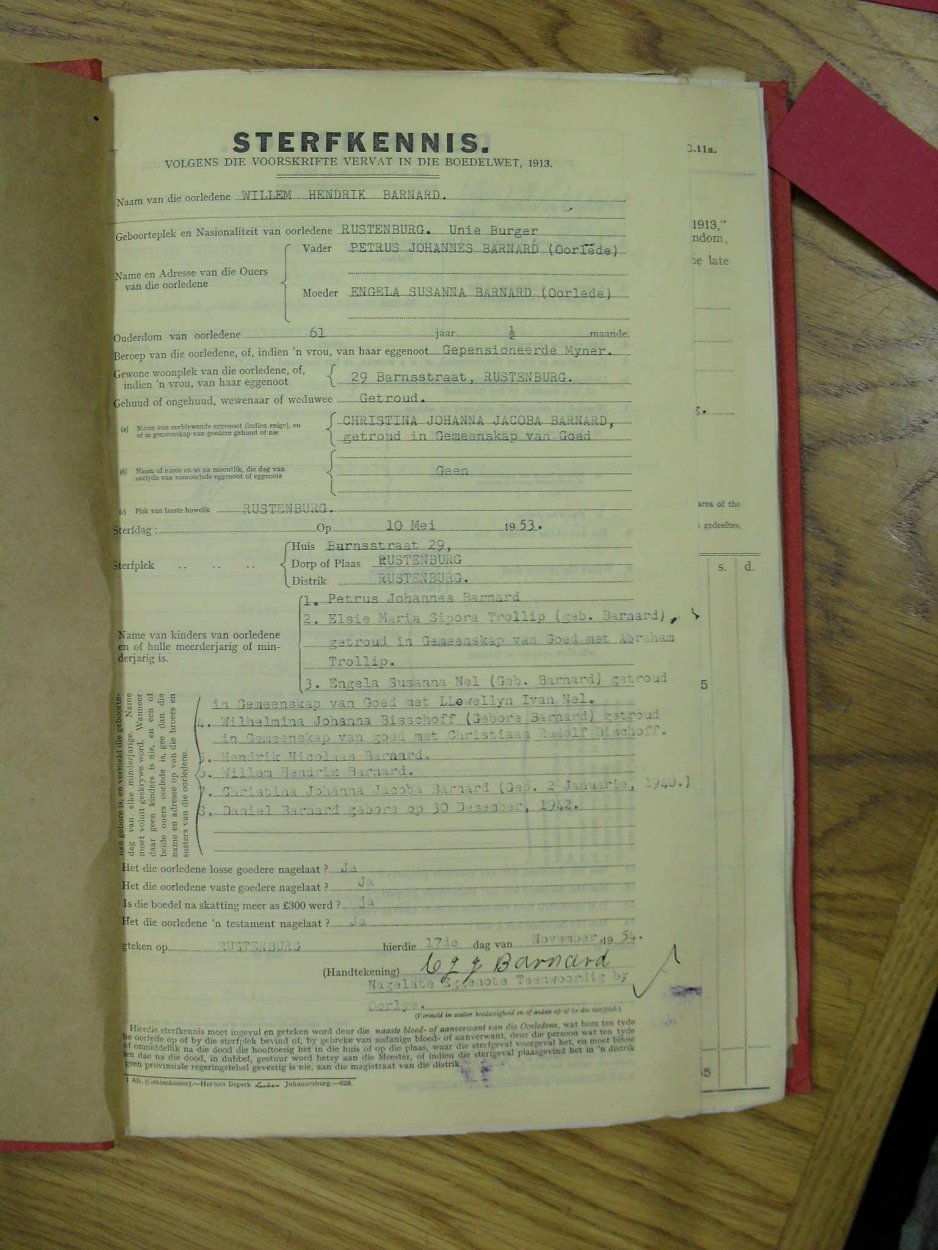 STERFKENNIS.
VOLGENS DIE VOORSKRIFTE VERVAT IN DIE BOEDELWET, 1913.
Naam van die oorledene WILLEM HENDRIK BARNARD.
Geboorteplek en Nasionaliteit van oorledene RUSTENBURG. Unie Burger
Name en Adresse van die Ouers van die oorledene
Vader PETRUS JOHANNES BARNARD (Oorlede)
Moeder ENGELA SUSANNA BARNARD (Oorlede)
Ouderdom van oorledene 61 jaar ½ maande.
Beroep van die oorledene, of, indien 'n vrou, van haar eggenoot Gepensioneerde Myner.
Gewone woonplek van die oorledene, of,
indien 'n vrou, van haar eggenoot
29 Barnsstraat, RUSTENBURG.
Gehuud of ongehuud, wewenaar of weduwee Getroud.
(a) Naam van oorblywende eggenoot (indien enige), en
of in gemeenskap van goedere gehuud of nie
CHRISTINA JOHANNA JACOBA BARNARD,
getroud in Gemeenskap van Goed
(b) Naam of name en so na moontlik, die dag van
oorlyde van vooroorlede eggenoot of eggenote
Geen
(c) Plek van laaste huwelik RUSTENBURG.
Sterfdag: Op 10 Mei 1953.
Sterfplek .. .. ..
Huis Burnsstraat 29,
Dorp of Plaas RUSTENBURG
Distrik RUSTENBURG.
Name van kinders van oorledene
en of hulle meerderjarig of min-
derjarig is.
1. Petrus Johannes Barnard
2. Elsie Maria Sipora Trollip (geb. Barnard),
getroud in Gemeenskap van Goed met Abraham
Trollip.
3. Engela Susanna Nel (Geb. Barnard) getroud
in Gemeenskap van Goed met LLewellyn Ivan Nel.
4. Wilhelmina Johanna Bisschoff (Gebore Barnard) getroud
in Gemeenskap van goed met Christiaan Rudolf Bischoff.
5. Hendrik Nicolaas Barnard.
6. Willem Hendrik Barnard.
7. Christina Johanna Jacoba Barnard (Geb. 2 Januarie, 1940.)
8. Daniel Barnard gebore op 30 Desember, 1942.
dag van elke minderjarige. Name
moet voluit geskrywe word. Wanneer
daar geen kinders is nie, en een of
beide ouers oorlede is, gee dan die
name en adresse op van die broers en
susters van die oorledene.
Het die oorledene losse goedere nagelaat? Ja
Het die oorledene vaste goedere nagelaat? Ja
Is die boedel na skatting meer as £300 werd? ja
Het die oorledene 'n testament nagelaat? Ja
gteken op RUSTENBURG hierdie 17de dag van November, 19 54.
(Handtekening) C J J Barnard
Nagelate Eggenote Teenwoordig by
Oorlye.
(Vermeld in watter hoedanigheid en of aldan op of by die sterfplek.)
Hierdie sterfkennis moet ingevul en geteken word deur die naaste bloed- of aanverwant van die Oorledene, wat hom ten tyde
oorlyde op of by die sterfplek bevind of, by gebreke van sodanige bloed- of aanverwant, deur die persoon wat ten tyde
of onmiddellik na die dood die hooftoesig het in die huis of op die plaas, waar die sterfgeval voorgeval het, en moet binne
tien dae na die dood, in dubbel, gestuur word hetsy aan die Meester, of indien die sterfgeval plaasgevind het in 'n distrik
geen provinsiale regeringstebel gevestig is nie, aan die magistraat van die distrik.
Horters Beperk Johannesburg.—028.
C.11a.
1913,"
ndom,
he late
area of the
gedeeltes.
s. d.
5